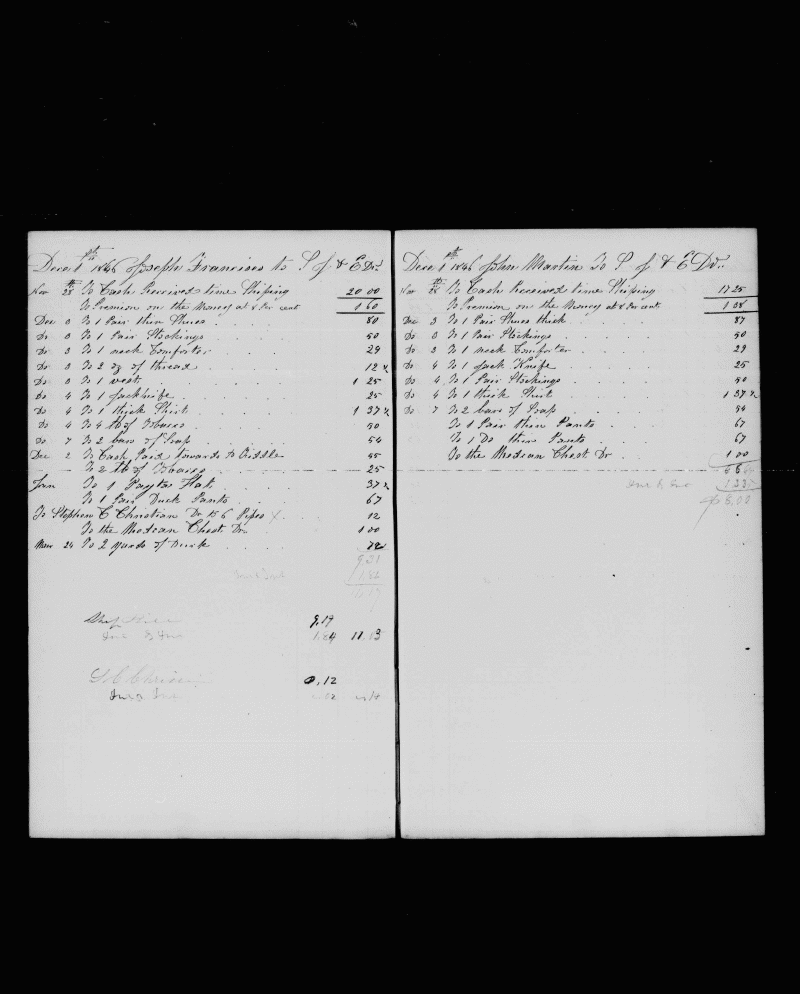 Dece 1th 1846 Joseph Francisco to S J & E Dr
Nov 28th To Cash Received time Shiping 20 00
To Premium on the Money at 8 Per cent 1 60
Dec 3 To 1 Pair thin Shues 80
Do 3 To 1 Pair Stockings 50
Do 3 To 1 neck Comforter 29
Do 3 To 2 oz of thread 12 ½
Do 3 To 1 vest 1 25
Do 4 To 1 Jackknife 25
Do 4 To 1 thick Shirt 1 37 ½
Do 4 To 4 lb of Tobacco 50
Do 7 To 2 bars of Soap 54
Dec 2 To Cash Paid towards to Fiddle
To 2 lb of Tobacco 25
Jan To 1 Payta Hat 37 ½
To 1 Pair Duck Pants 67
To Stephen C Christian Dr to 6 Pipes X 12
To the Medcan Chest Dr 1 00
Mar 24 To 2 yards of Duck 72
9.21
1.84
Ship
9,19
Int & Ins 1.84 11.03
S C Christian 0,12
Int & Ins
Dece 1th 1846 John Martin To S J & E Dr
Nov 28th To Cash Received time Shiping 17 25
To Premium on the Money at 8 Per cent 1 38
Dec 3 To 1 Pair Shues thick 87
Do 3 To 1 Pair Stockings 50
Do 3 To 1 neck Comforter 29
Do 4 To 1 Jack Knife 25
Do 4 To 1 Pair Stockings 50
Do 4 To 1 thick Shirt 1 37 ½
Do 7 To 2 bars of Soap 54
To 1 Pair thin Pants 67
To 1 Do thin Pants 67
To the Medcan Chest Dr 1 00
6 6
Int & Ins 1 33
$8,00